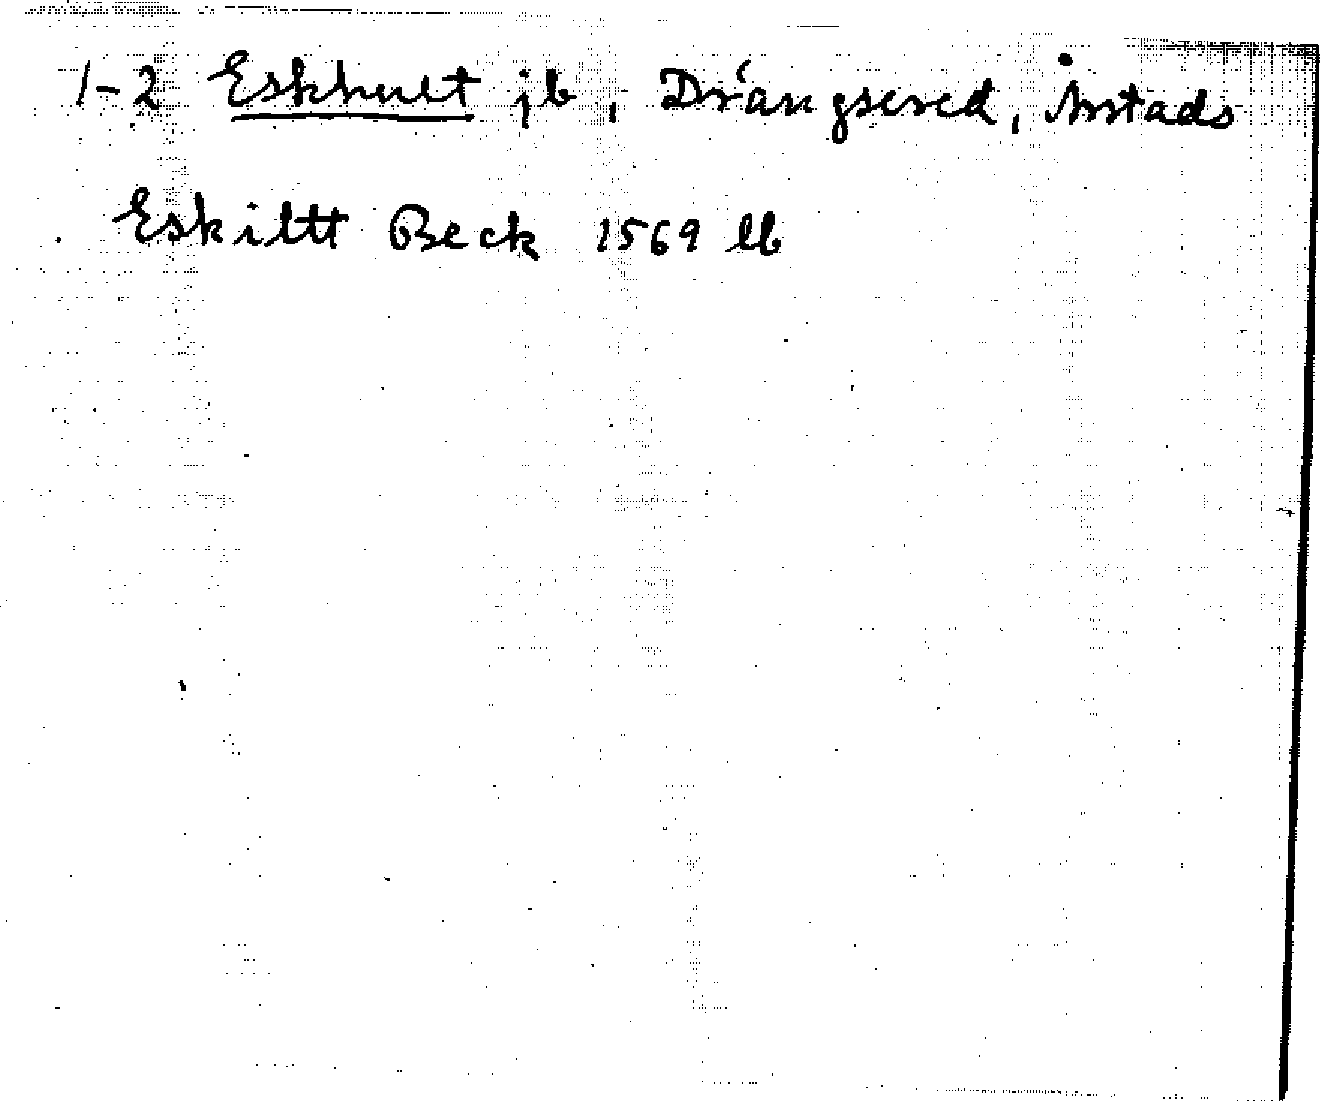 1-2 Eskhult jb, Drängsered, Årstads
Eskiltt Beck 1569 lb